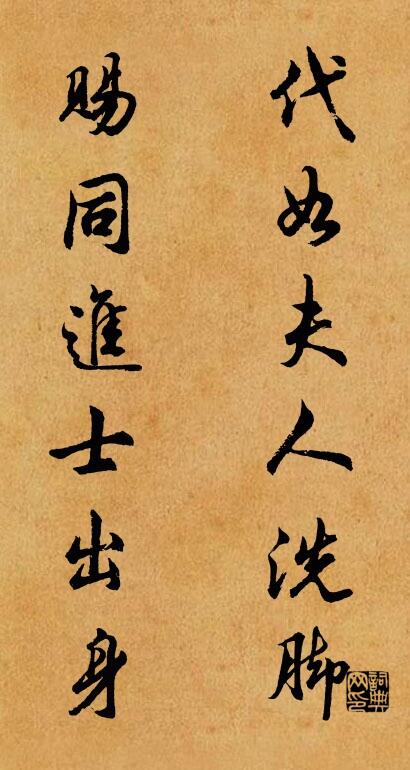 代如夫人洗脚
賜同進士出身
詞典網印